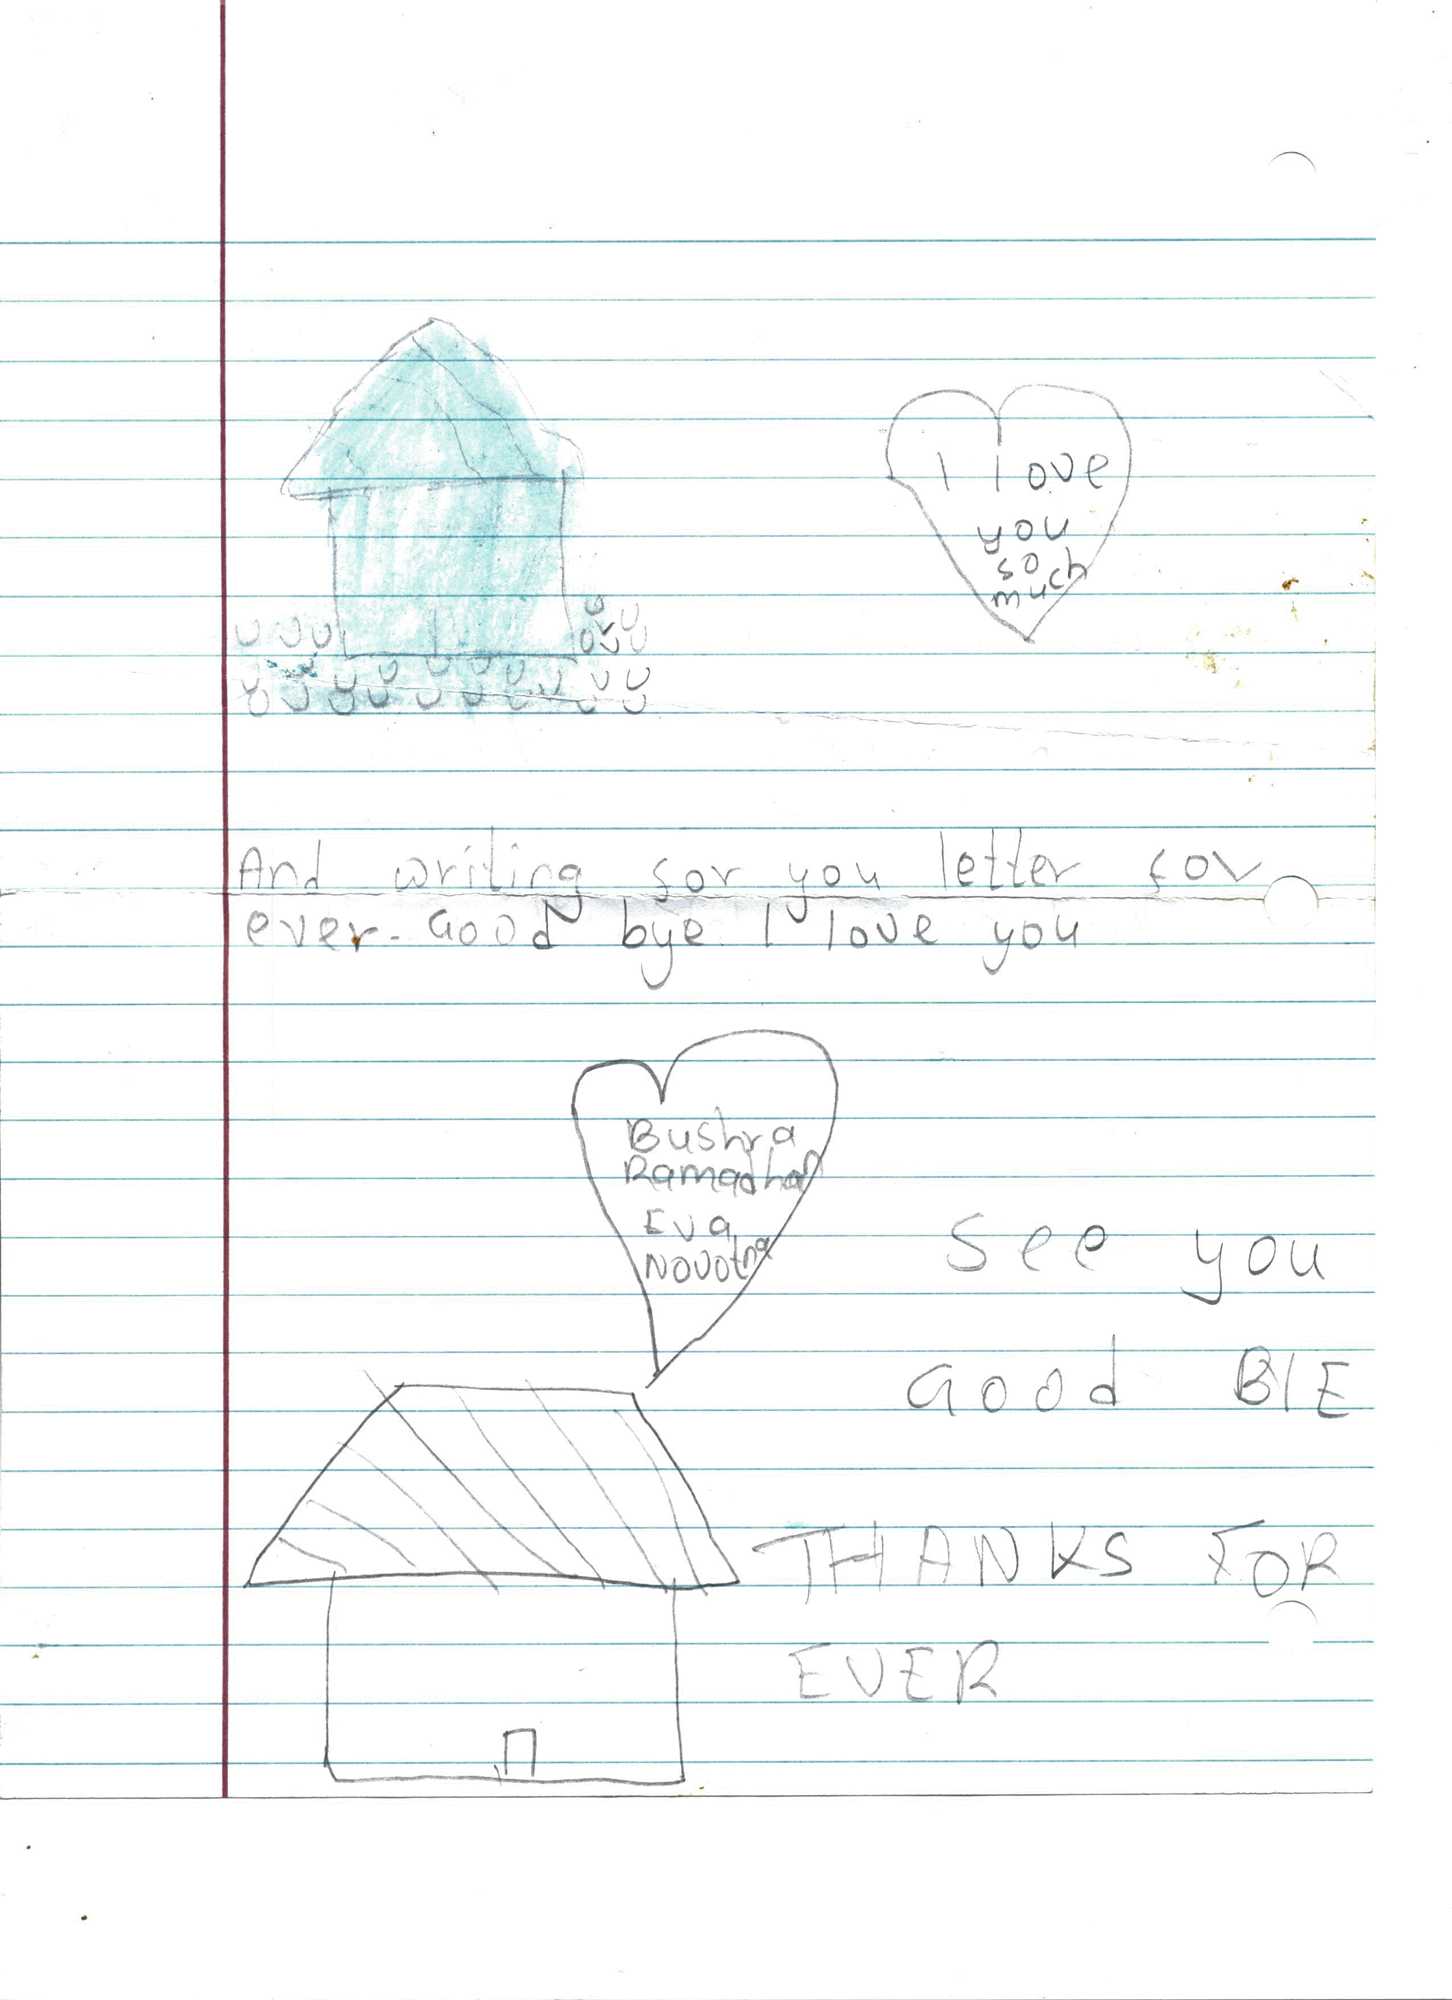 I love
you
so
much
And writing for you letter for
ever. Good bye I love you
Bushra
Ramadhan
Eva
Novotna
See you
Good BIE
THANKS FOR
EVER